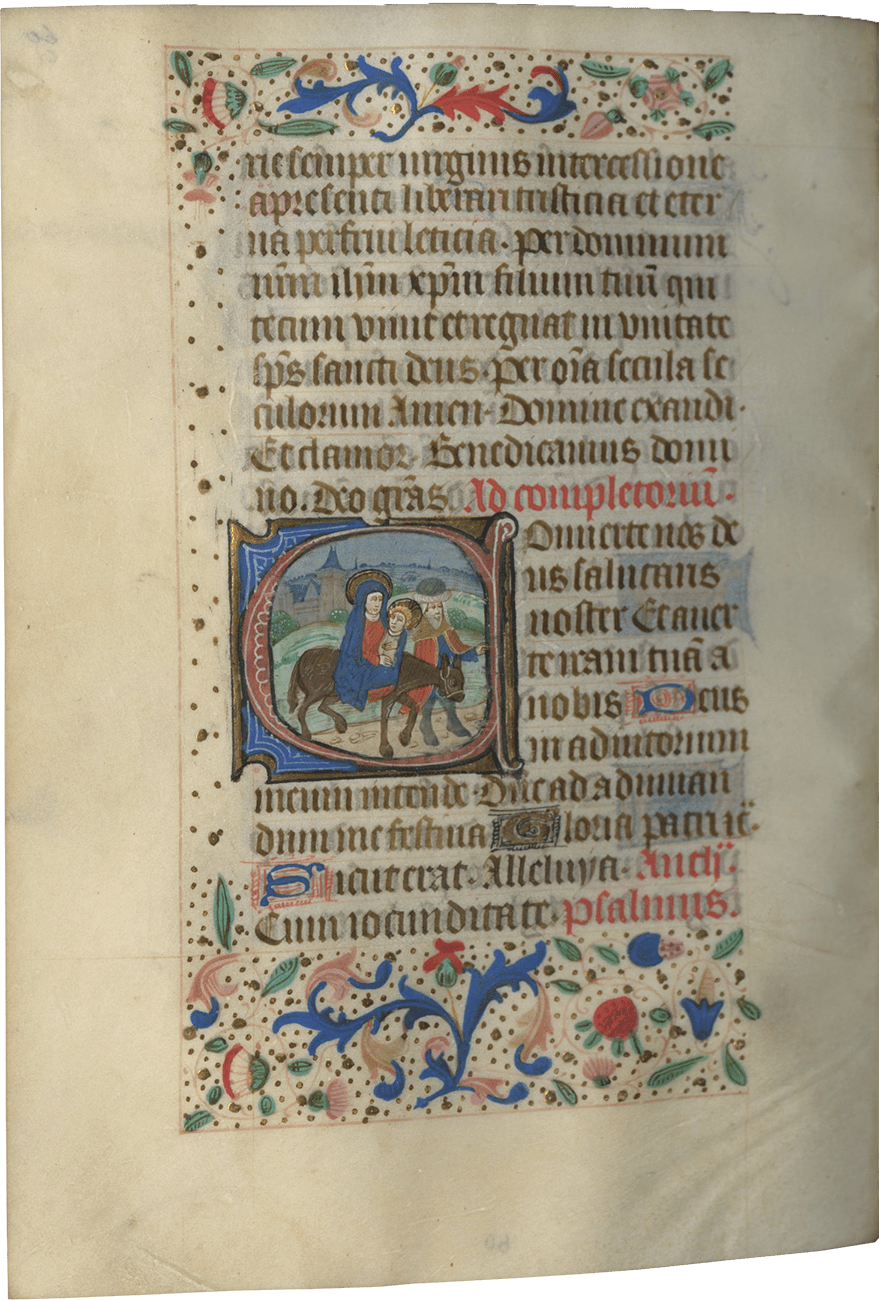 rie semper virginis intercessione
a presenti liberari tristicia et eter
na perfrui leticia. Per dominum
nr̄m ih̄m xp̄m filium tuū qui
tecum viuit et regnat in vnitate
sp̄s sancti deus. Per oīa secula se
culorum Amen. Domine exaudi.
Et clamor. Benedicamus domi
no. Deo grās. Ad completoriū.
Conuerte nos de
us salutaris
noster Et auer
te iram tuā a
nobis Deus
in adiutorium
meum intende. Dn̄e ad adiuuan
dum me festina Gloria patri et̄.
Sicut erat. Alleluya.
Cum iocunditate. psalmus.